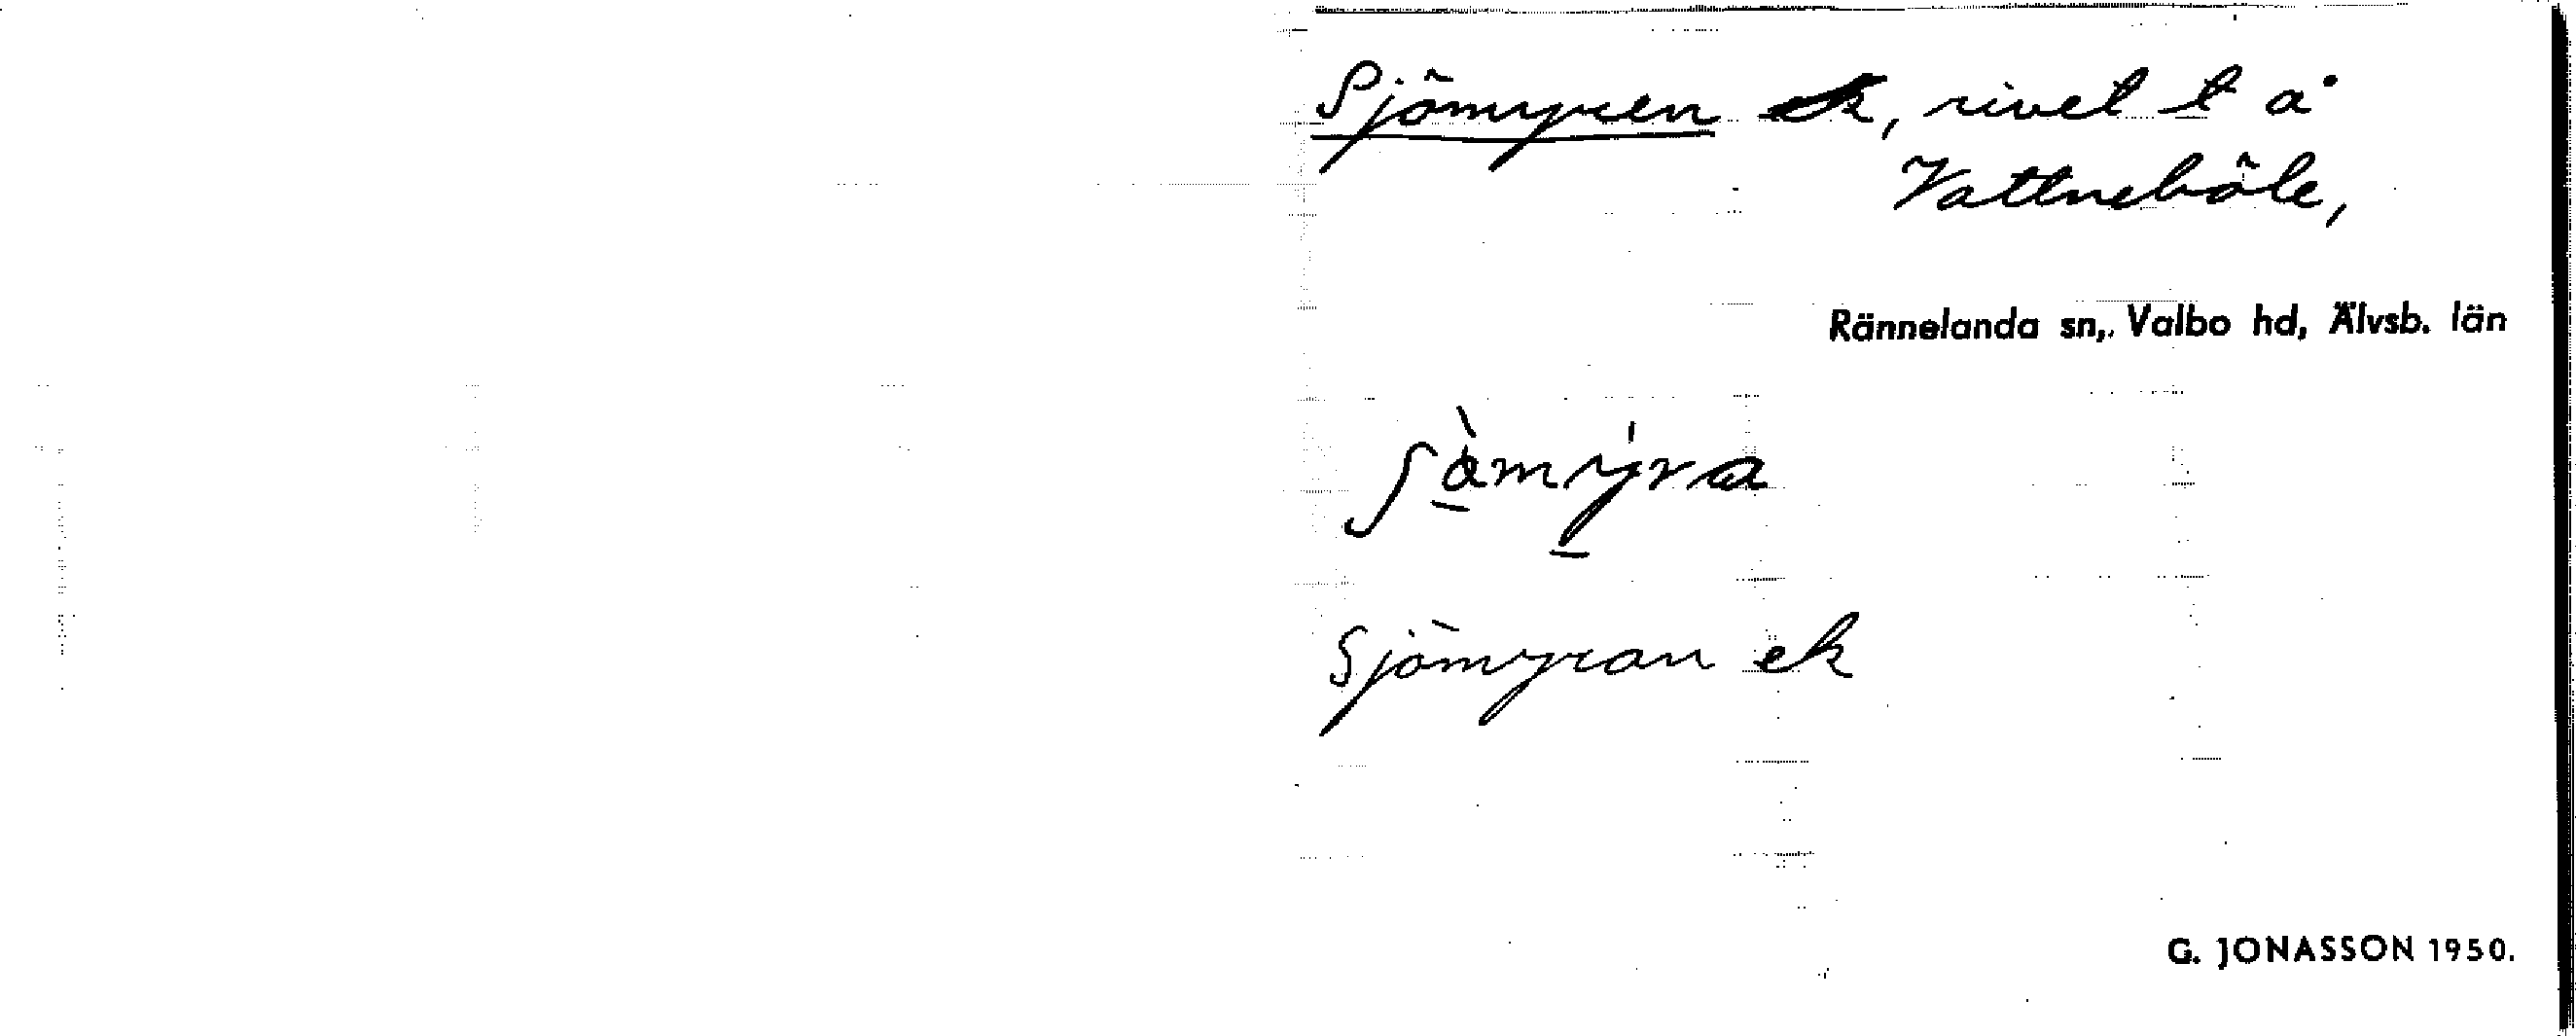 Sjömyren ek, rivet t å
Vattneböle,
Rännelanda sn,. Valbo hd, Älvsb. län
Sjömyran ek
G. JONASSON 1950.